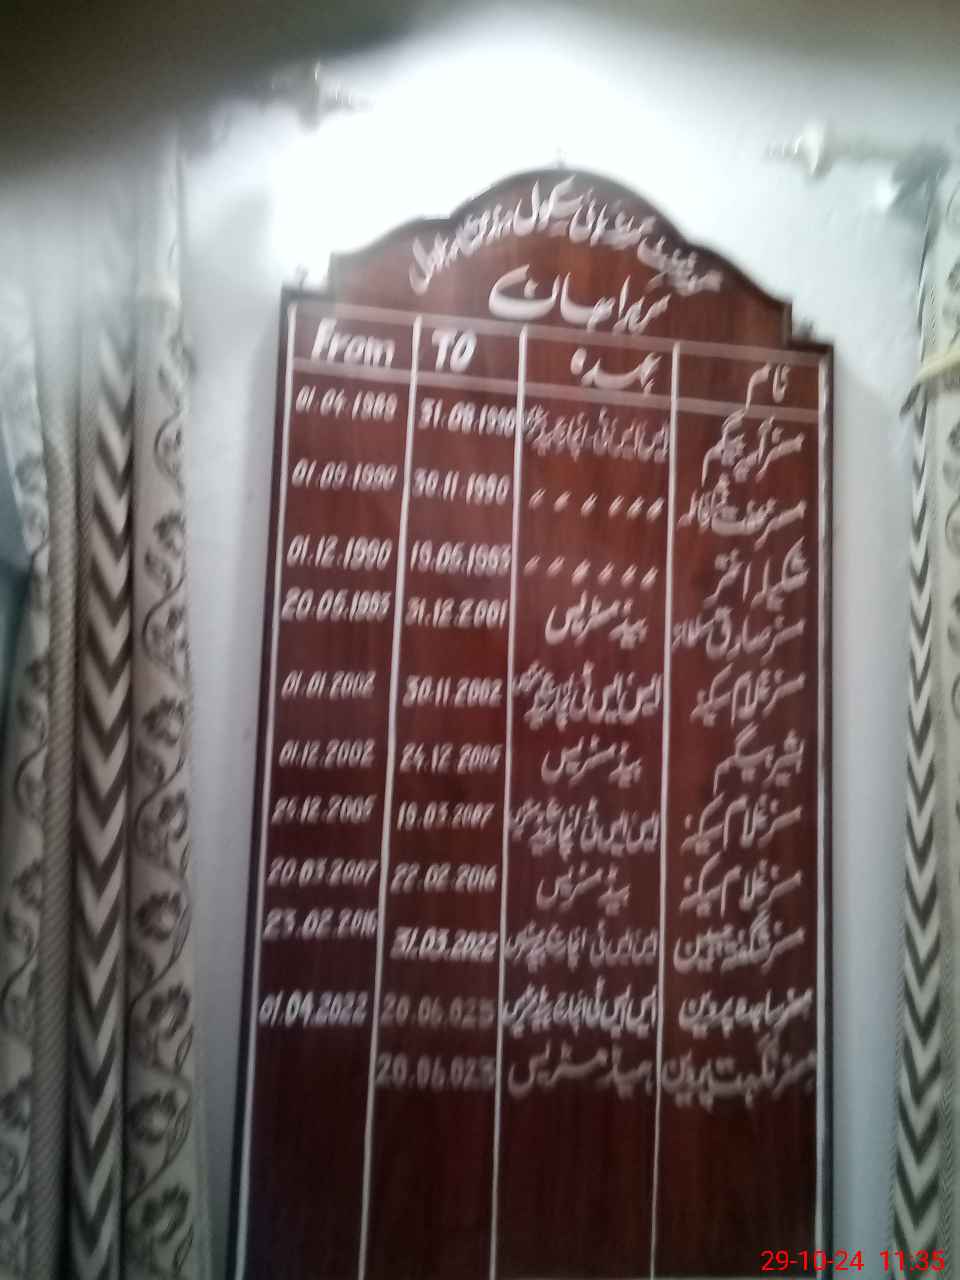 گورنمنٹ گرلز ہائی سکول
سربراہان
From TO عہدہ نام
01.04.1989 31.08.1990 ایس ایس ٹی انچارج ہیڈ مسٹریس مسز بیگم
01.09.1990 30.11.1990 〃 〃 〃 〃 〃 〃 مسز
01.12.1990 19.06.1995 〃 〃 〃 〃 〃 〃 شکیلہ اختر
20.06.1995 31.12.2001 ہیڈ مسٹریس مسز صادق سلطانہ
01.01.2002 30.11.2002 ایس ایس ٹی انچارج ہیڈ مسٹریس مسز غلام سکینہ
01.12.2002 24.12.2005 ہیڈ مسٹریس بیگم
25.12.2005 19.03.2007 ایس ایس ٹی انچارج ہیڈ مسٹریس مسز غلام سکینہ
20.03.2007 22.02.2016 ہیڈ مسٹریس مسز غلام سکینہ
23.02.2016 31.03.2022 ایس ایس ٹی انچارج ہیڈ مسٹریس مسز
01.04.2022 20.06.023 ایس ایس ٹی انچارج ہیڈ مسٹریس مسز ساجدہ پروین
20.06.023 ہیڈ مسٹریس مسز نگہت پروین
29-10-24 11:35